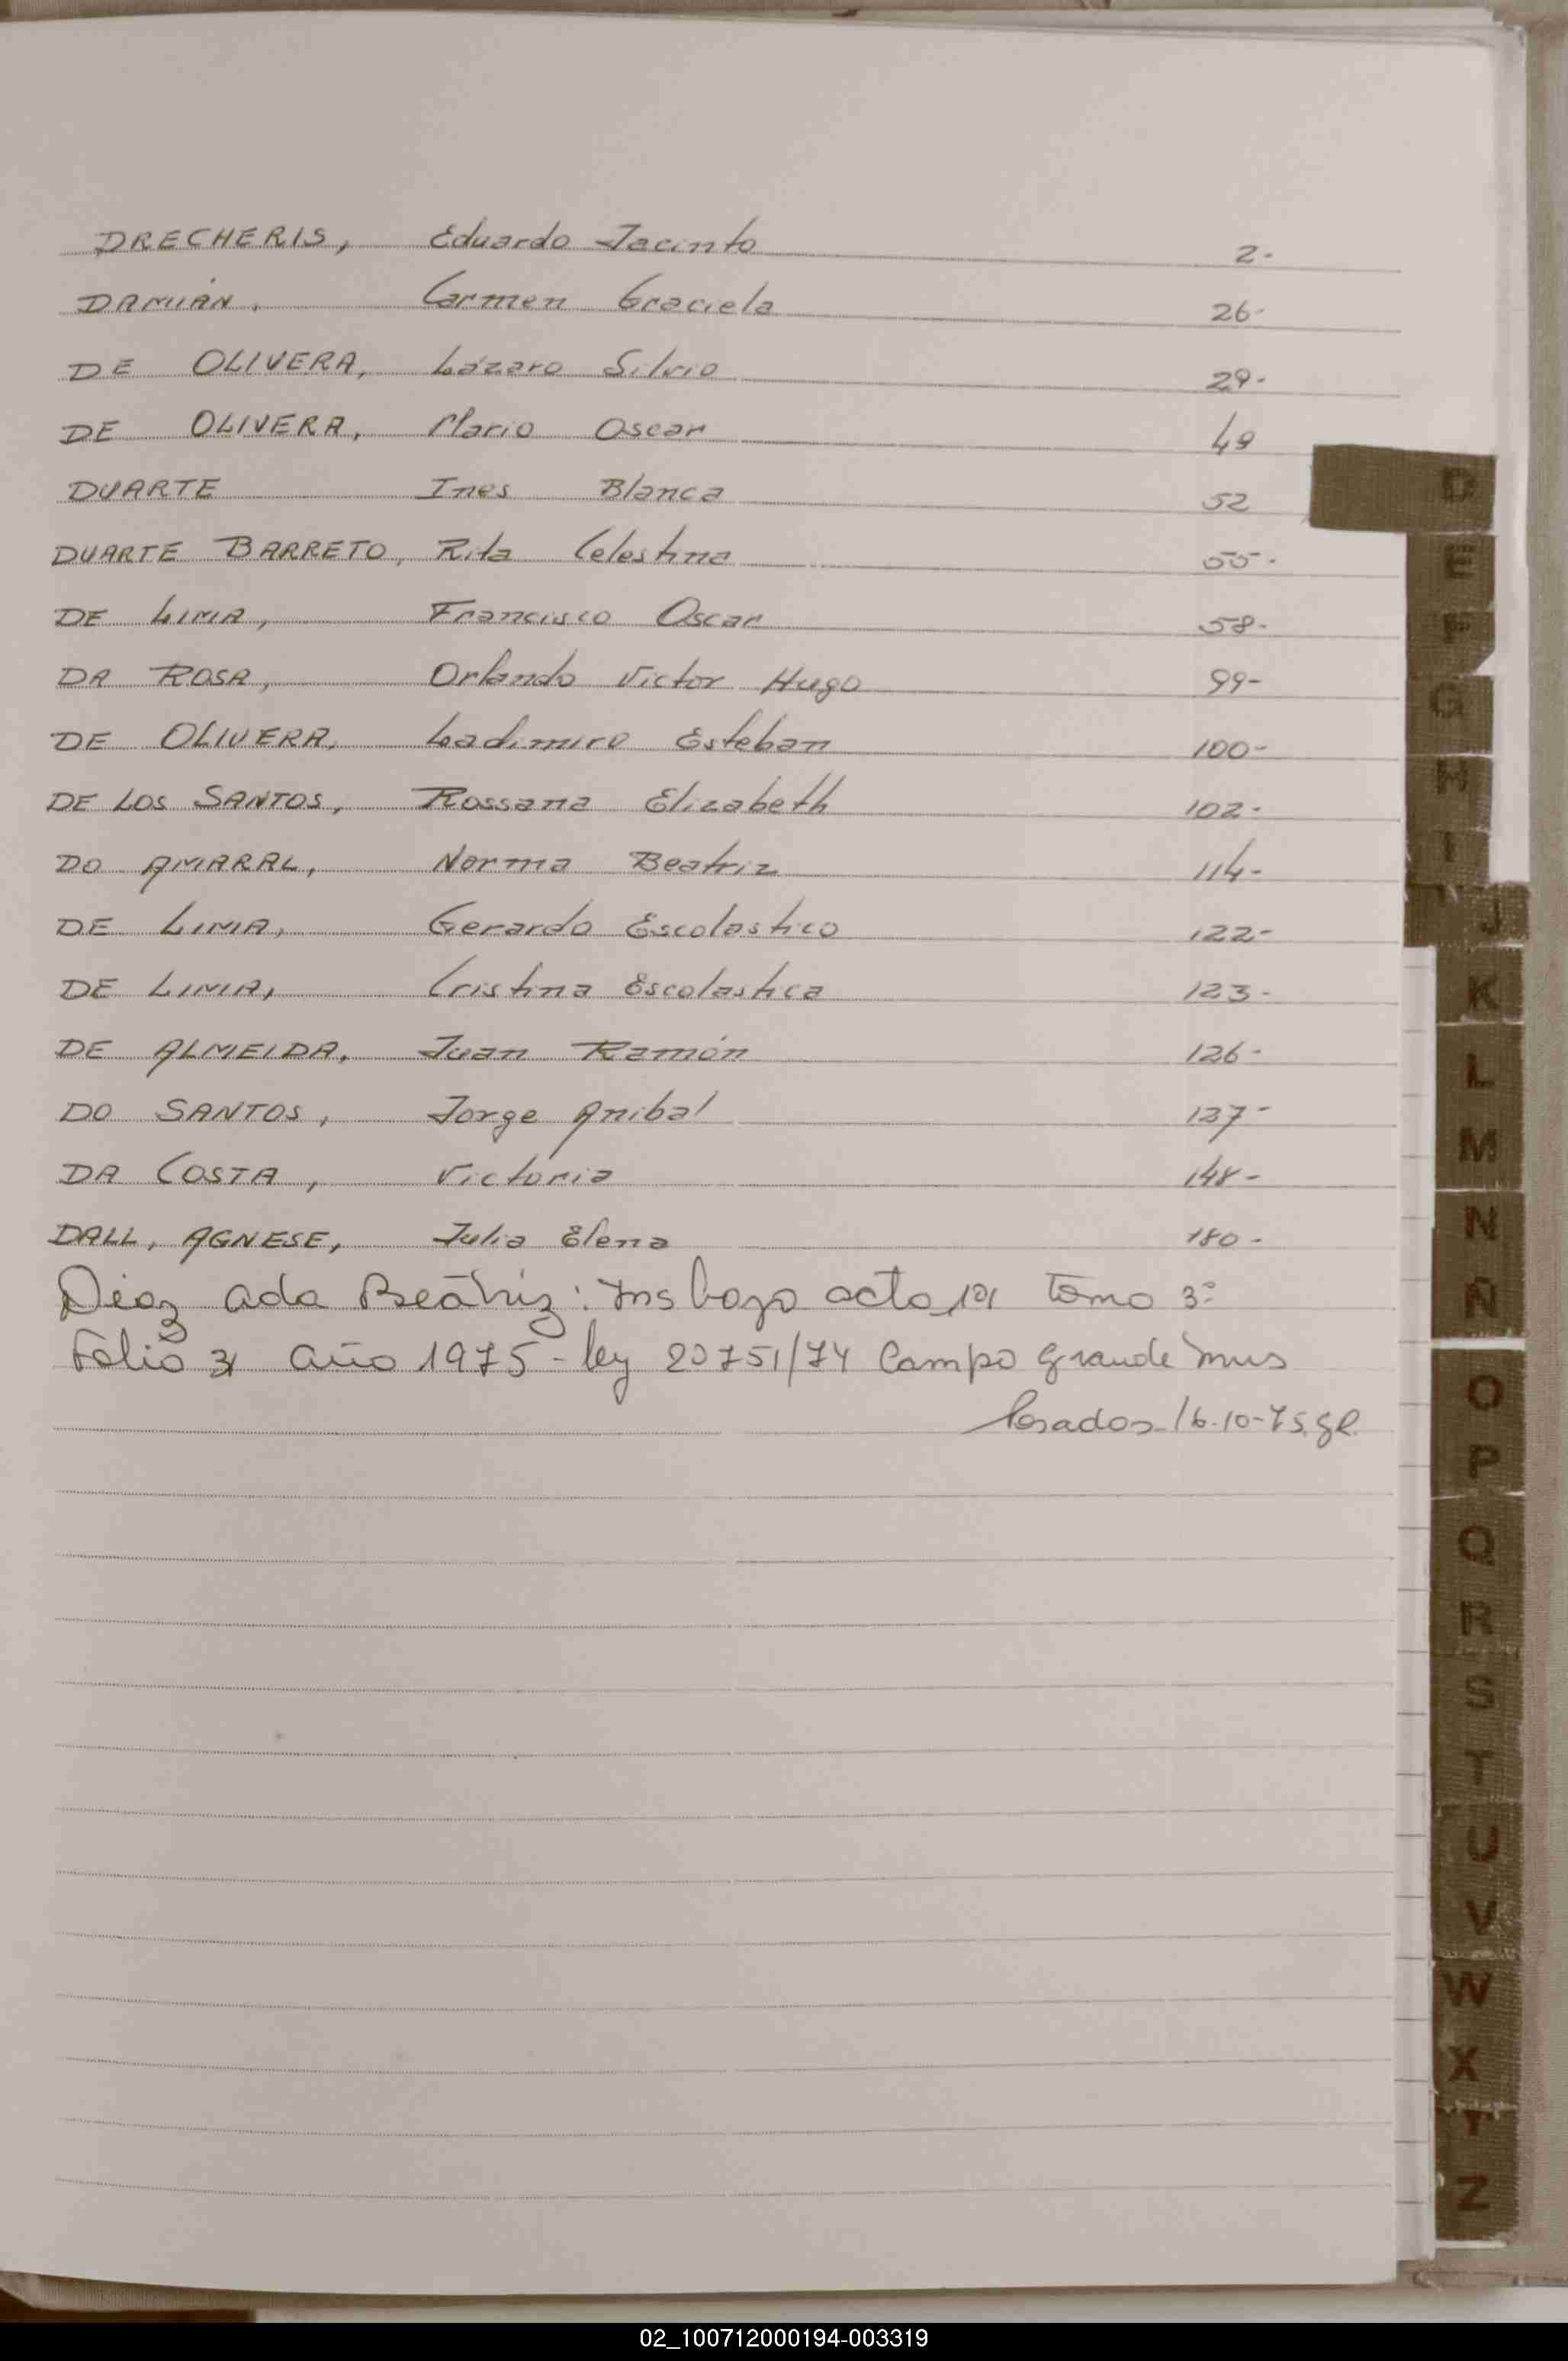 DRECHERIS, Eduardo Jacinto 2-
DAMIÁN, Carmen Graciela 26-
DE OLIVERA, Lázaro Silvio 29-
DE OLIVERA, Mario Oscar 49
DUARTE Ines Blanca 52
DUARTE BARRETO, Rita Celestina 55-
DE LIMA, Francisco Oscar 58-
DA ROSA, Orlando Victor Hugo 99-
DE OLIVERA, Ladimiro Esteban 100-
DE LOS SANTOS, Rossana Elizabeth 102-
DO AMARAL, Norma Beatriz 114-
DE LIMA, Gerardo Escolastico 122-
DE LIMA, Cristina Escolastica 123-
DE ALMEIDA, Juan Ramón 126-
DO SANTOS, Jorge Anibal 137-
DA COSTA, Victoria 148-
DALL, AGNESE, Julia Elena 180-
Diaz Ada Beatriz: Ins bajo acta 101 Tomo 3º
Folio 31 año 1975 - ley 20751/74 Campo Grande Mnes
Posadas 16-10-75
D
E
F
G
H
I
J
K
L
M
N
Ñ
O
P
Q
R
S
T
U
V
W
X
Y
Z
02_100712000194-003319